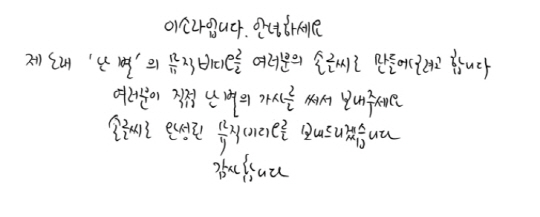 이소라입니다. 안녕하세요
제 노래 '난 별' 의 뮤직비디오를 여러분의 손글씨로 만들어보려고 합니다
여러분이 직접 난 별의 가사를 써서 보내주세요
손글씨로 완성된 뮤직비디오를 보내드리겠습니다
감사합니다